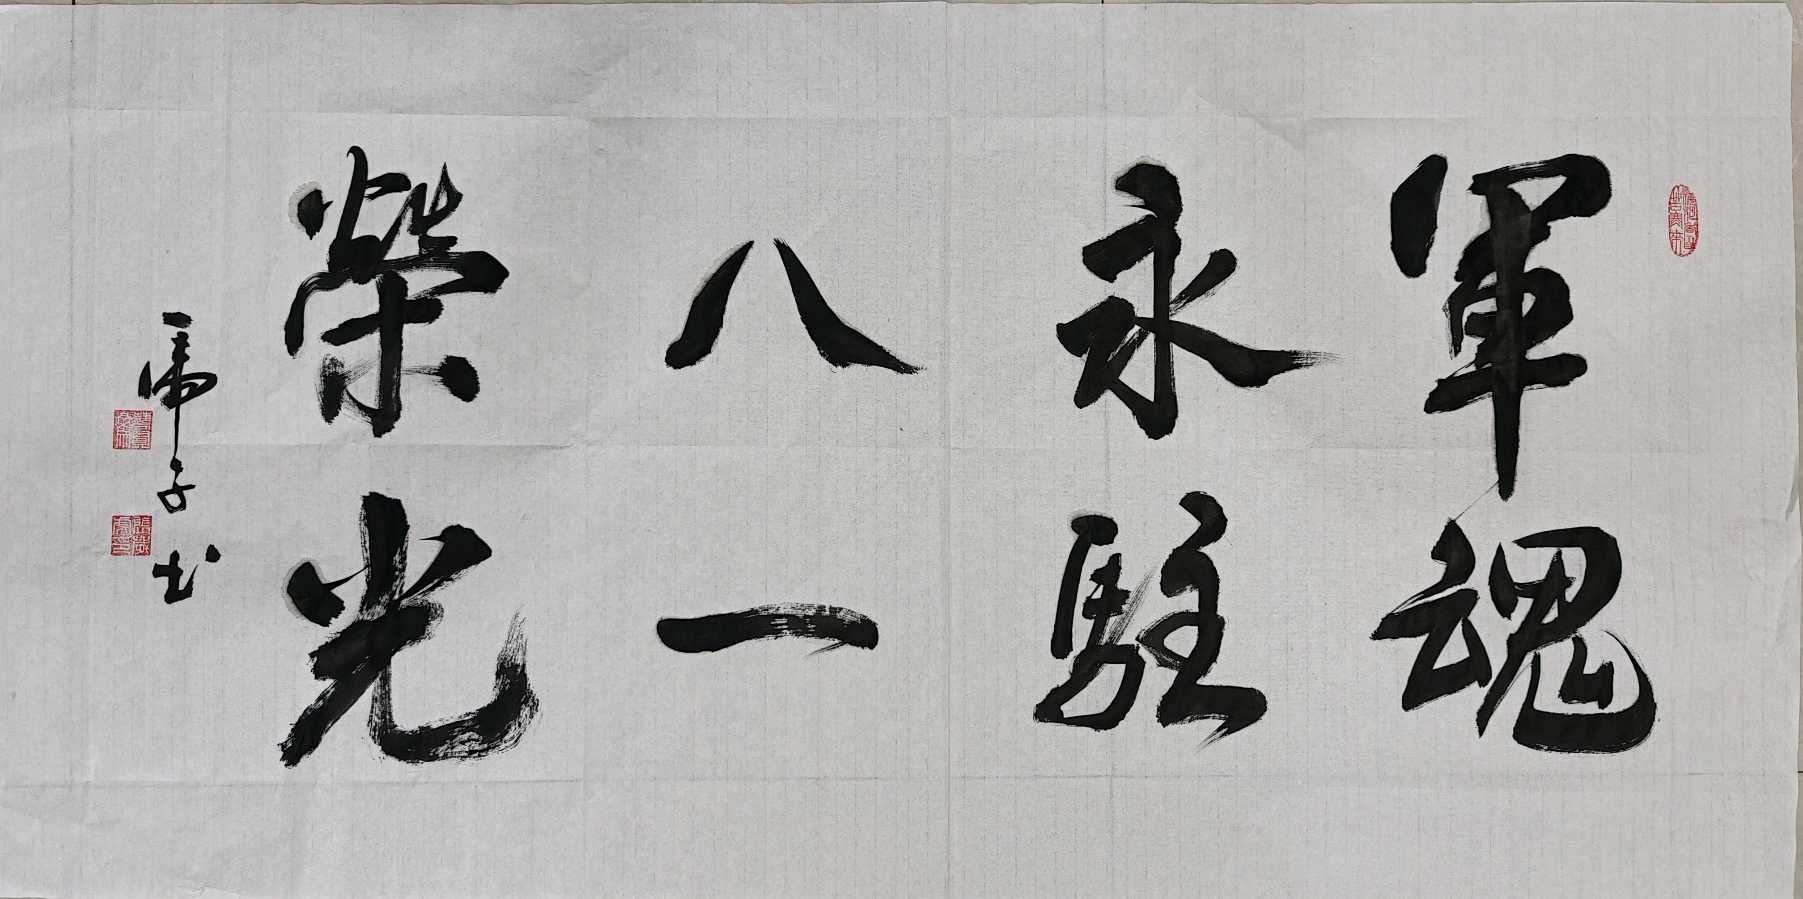 軍魂
永駐
八一
榮光
虎子书